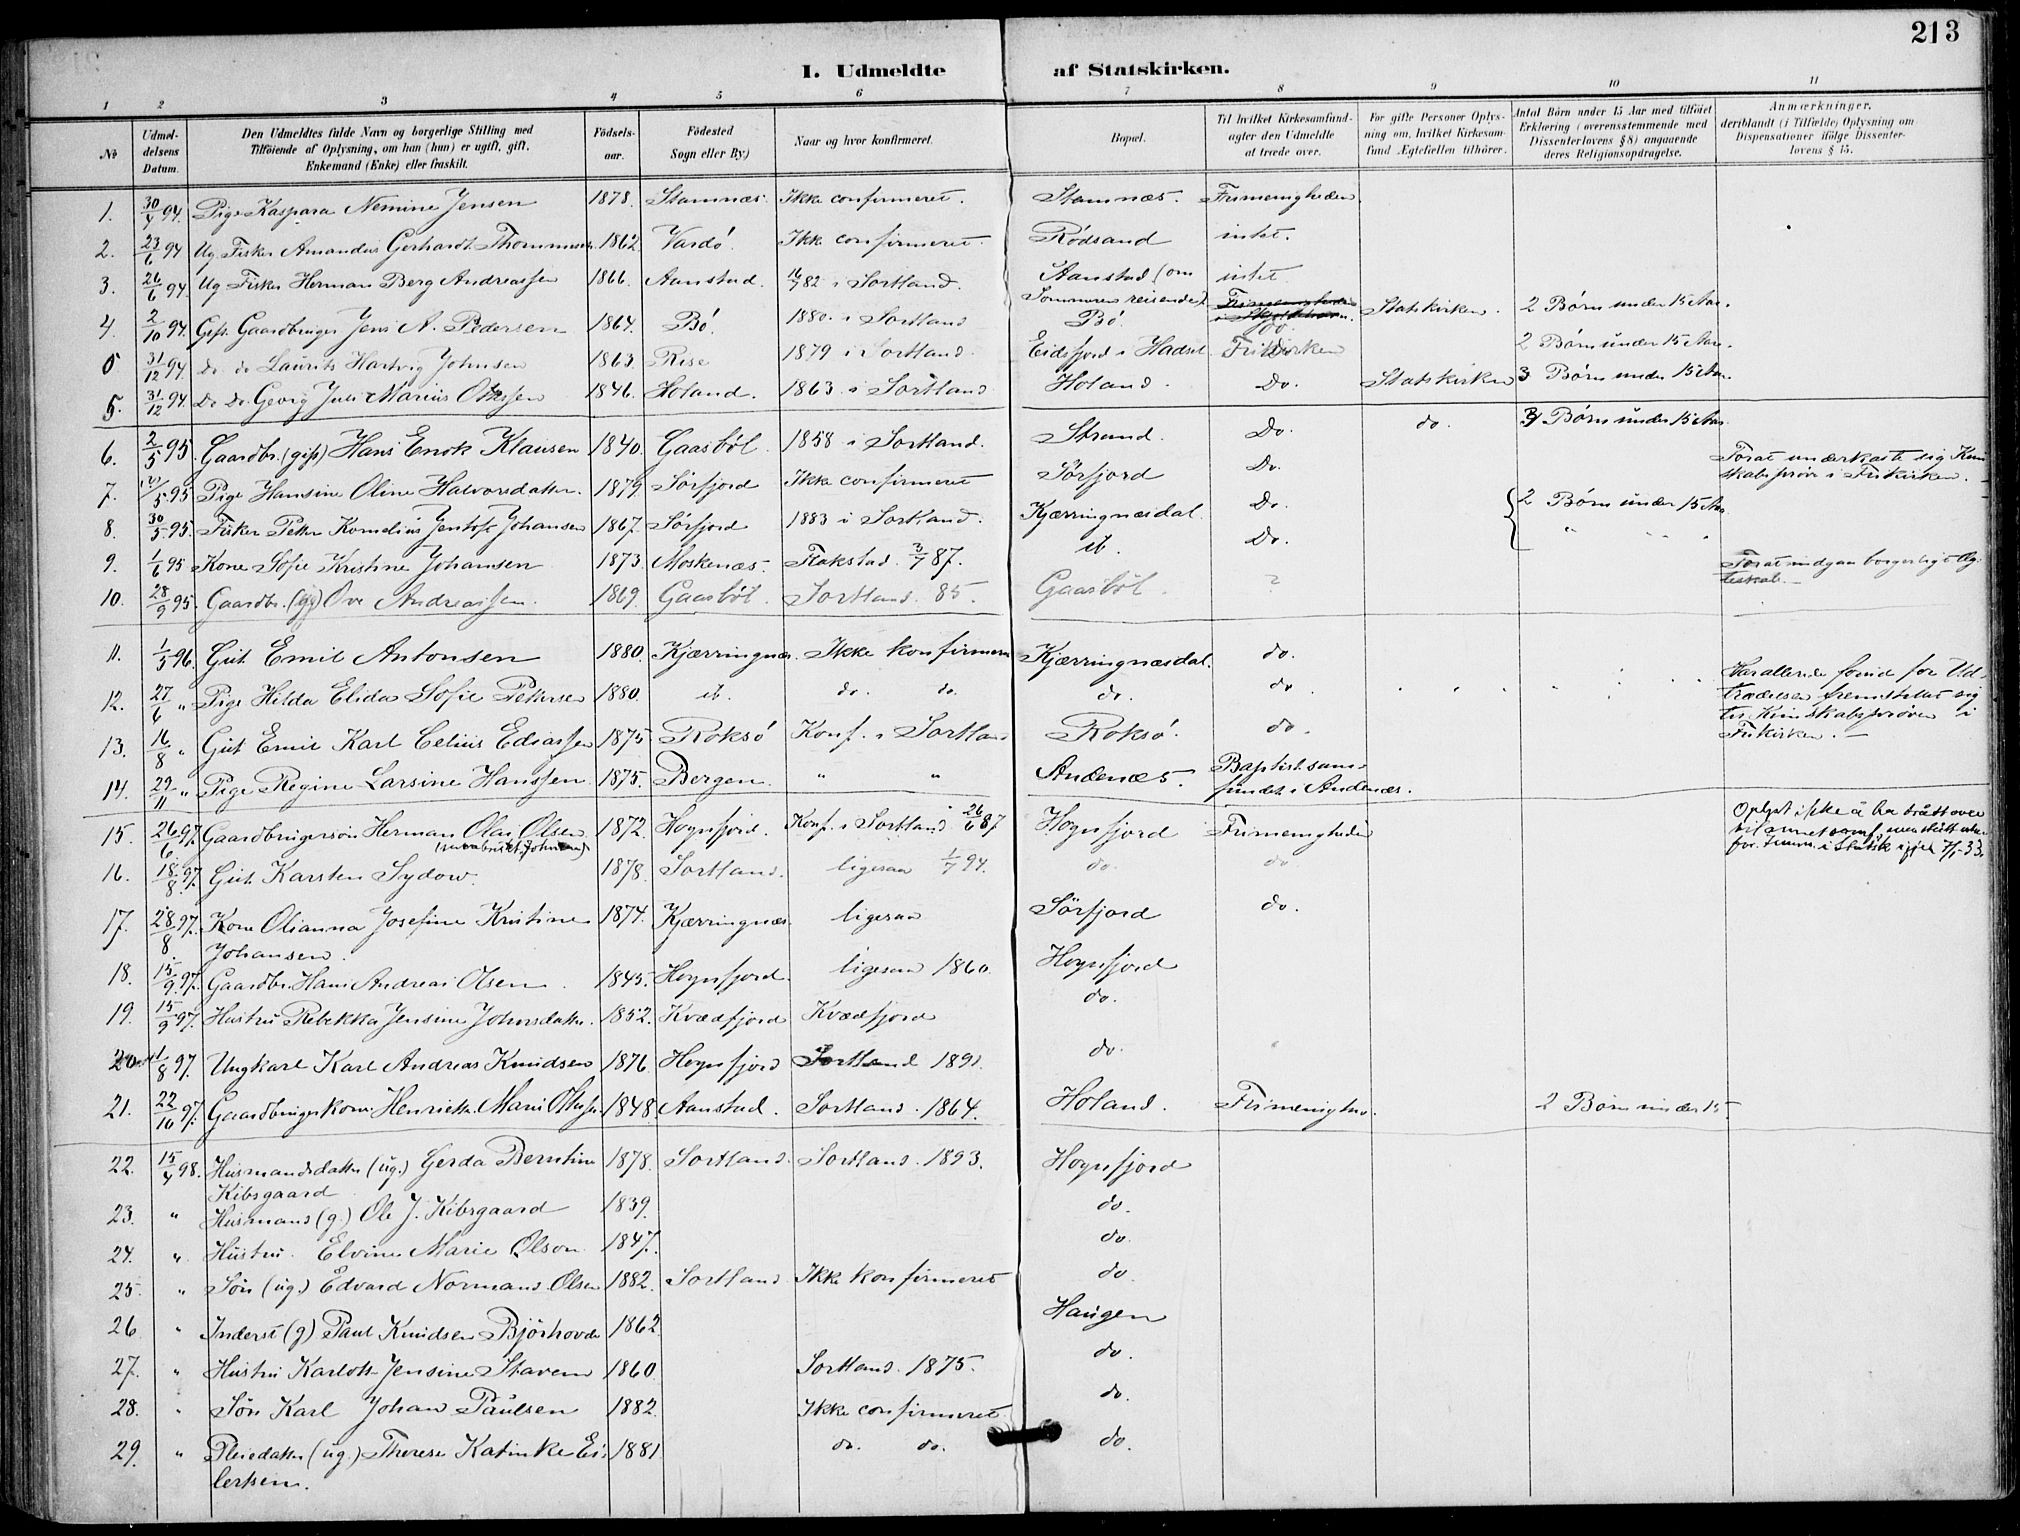 213
I. Udmeldte af Statskirken.
1 2 3 4 5 6 7 8 9 10 11
No
Udmeldelsens Datum.
Den Udmeldtes fulde Navn og borgerlige Stilling med Tilføiende af Oplysning, om han (hun) er ugift, gift, Enkemand (Enke) eller fraskilt.
Fødselsaar.
Fødested Sogn eller By)
Naar og hvor konfirmeret.
Bopæl.
Til hvilket Kirkesamfund agter den Udmeldte at træde over.
For gifte Personer Oplysning om, hvilket Kirkesamfund Ægtefællen tilhører.
Antal Børn under 15 Aar med tilføiet Erklæring (overensstemmende med Dissenterlovens § 8) angaaende deres Religionsopdragelse.
Anmærkninger, deriblandt (i Tilfælde) Oplysning om Dispensationer ifølge Dissenterlovens § 15.
1. 30/4 94. Pige Kaspara Nemine Jensen 1878. Stamnæs. Ikke confirmeret. Stamnæs. Frimenigheden
2. 23/6 94 Ug. Fisker Amandus Gerhardt Thommesen 1862 Vardö. Ikke confirmeret. Rödsand intet.
3. 26/6 94. Ug Fisker Herman Berg Andreassen 1866. Aanstad. 16/7 82 i Sortland. Aanstad (om Sommeren reisende) intet
4. 2/10 94. Gift Gaardbruger Jens A. Pedersen 1864. Bö. 1880. i Sortland Bö. do Statskirken. 2 Børn under 15 Aar.
5 31/12 94. do do Laurits Hartvig Johnsen 1863. Rise 1879 i Sortland. Eidsfjord i Hadsel. Frikirken 2 Børn under 15 Aar.
5. 31/12 94. Do Do. Georg Juli Marius Ottesen 1846. Holand. 1863. i Sortland Holand. Do. Statskirken 3 Børn under 15 Aar.
6. 2/5 95. Gaardbr. (gift) Hans Enok Klausen 1840. Gaasböl. 1858 i Sortland. Strand. Do. do. Børn under 15 Aar
7. 5 95 Pige Hansine Oline Halvorsdatter. 1879. Sörfjord Ikke confirmeret Sörfjord Do. For at underkaste sig Kundskabspröve i Frikirken.
8. 30/5 95. Fisker Petter Kornelius Jentoft Johansen 1867. Sörfjord 1883 i Sortland. Kjærringnæsdal. Do. 2 Børn under 15 Aar
9. 1/6 95 Kone Sofie Kristine Johansen 1873. Moskenæs. Flakstad 3/7 87. ib. Do. " " "
10. 28/9 95. Gaardbr. (ug) Ove Andreassen. 1869. Gaasböl. Sortland. 85. Gaasböl. ? For at indgaa borgerligt Ægteskab.
11. 1/5 96. Gut Emil Antonsen 1880. Kjærringnæs. Ikke konfirmeret Kjærringnæsdal. do.
12. 27/6 " Pige Hilda Elida Sofie Pettersen 1880. ib. do. do. do. do Har allerede forud for Udtrædelsen fremstillet sig til Kundskabspröven i Frikirken.
13. 16/8 " Gut Emil Karl Celius Ediassen 1875 Roksö Konf. i Sortland Roksö. do.
14. 22/11 " Pige Regine Larsine Hanssen 1875. Bergen. " " Andenæs. Baptistsamfundet i Andenæs.
15. 26/6 97. Gaardbrugersön Herman Olai Olsen 1872. Hognfjord. Konf. i Sortland 26/6 87 Hognfjord Frimenigheden Oplyst ikke å ha trått over til annet samf.
16. 18/8 97. Gut Karsten Sydow. 1878. Sortland. ligesaa 1/7 94. do. do.
17. 28/8 97. Kone Olianna Josefine Kristine Johansen. 1874. Kjærringnæs. ligesaa Sörfjord do.
18. 15/9 97. Gaardbr. Hans Andreas Olsen 1845. Hognfjord. ligesaa 1860. Hognfjord
19. 15/9 97. Hustru Rebekka Jensine Johnsdatter. 1852. Kvædfjord Kvædfjord do.
20. 1/8 97. Ungkarl Karl Andreas Knudsen 1876. Hognfjord Sortland 1891. do.
21. 22/10 97. Gaardbrugerkone Henrikke Marie Ottesen 1848. Aanstad. Sortland. 1864. Holand. Frimenighed. 2 Børn under 15.
22. 15/4 98. Husmandsdatter (ug.) Gerda Berntine Kibsgaard 1878. Sortland. Sortland. 1893. Hognfjord
23. " Husmand (g.) Ole J. Kibsgaard 1839. do.
24. " Hustru Elvine Marie Olson 1847. do.
25. " Sön (ug.) Edvard Normand Olsen 1882. Sortland Ikke konfirmeret do
26 " Inderst (g) Paul Knudsen Björhovde 1862. Haugen
27. " Hustru Karlotte Jensine Stavem 1860. Sortland. 1875. do.
28. " Sön Karl Johan Paulsen 1882. Ikke confirmeret. do.
29. " Pleiedatter (ug.) Therese Katinka Eilertsen. 1881. do. do. do.